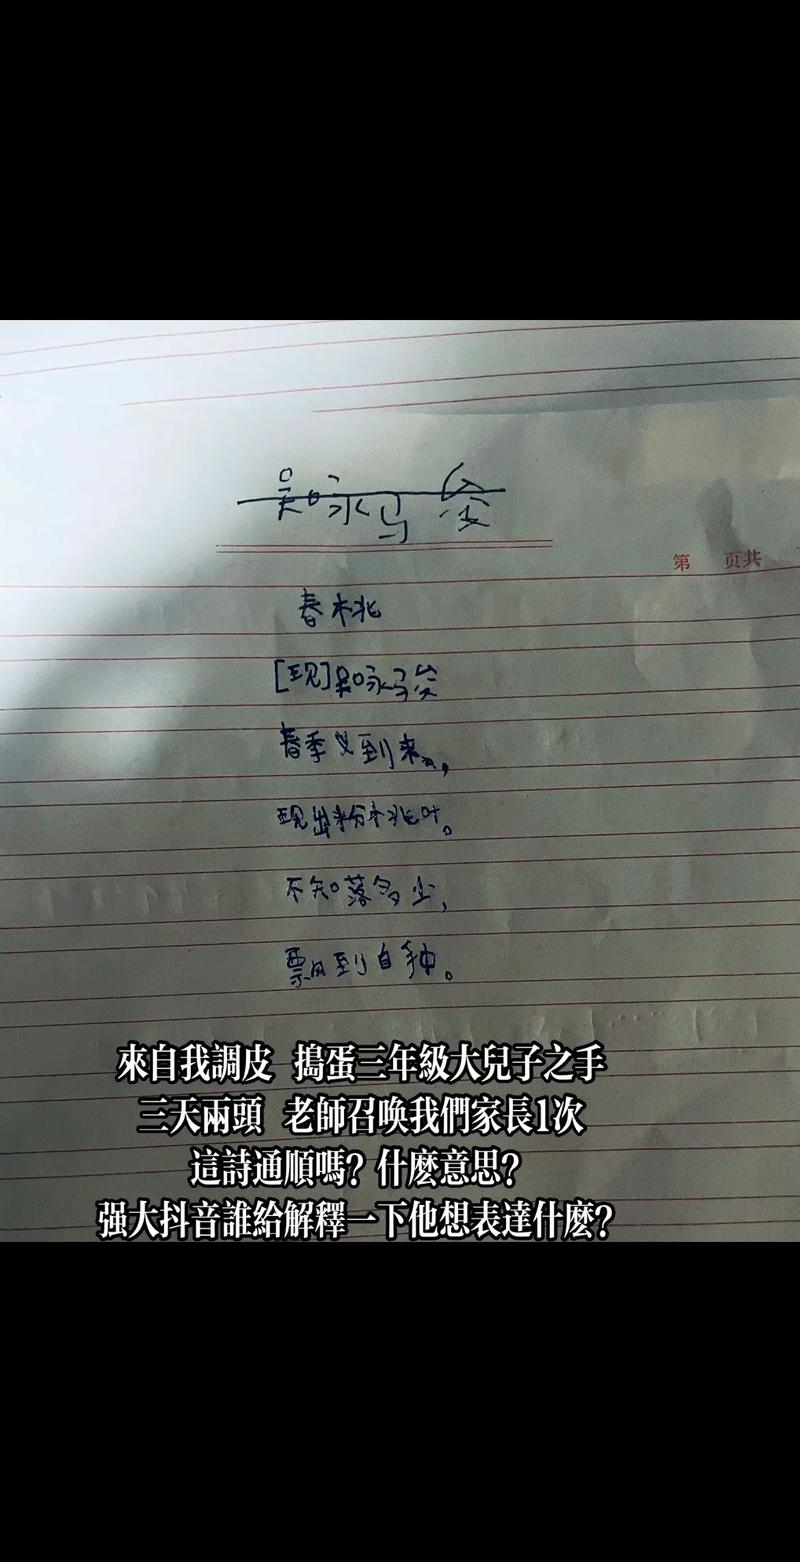 吴咏骏
第 页共
春桃
[现]吴咏骏
春季又到来,
现出粉桃叶。
不知落多少,
飘到自种。
來自我調皮 搗蛋三年級大兒子之手
三天兩頭 老師召喚我們家長1次
這詩通順嗎？什麽意思？
强大抖音誰給解釋一下他想表達什麽？